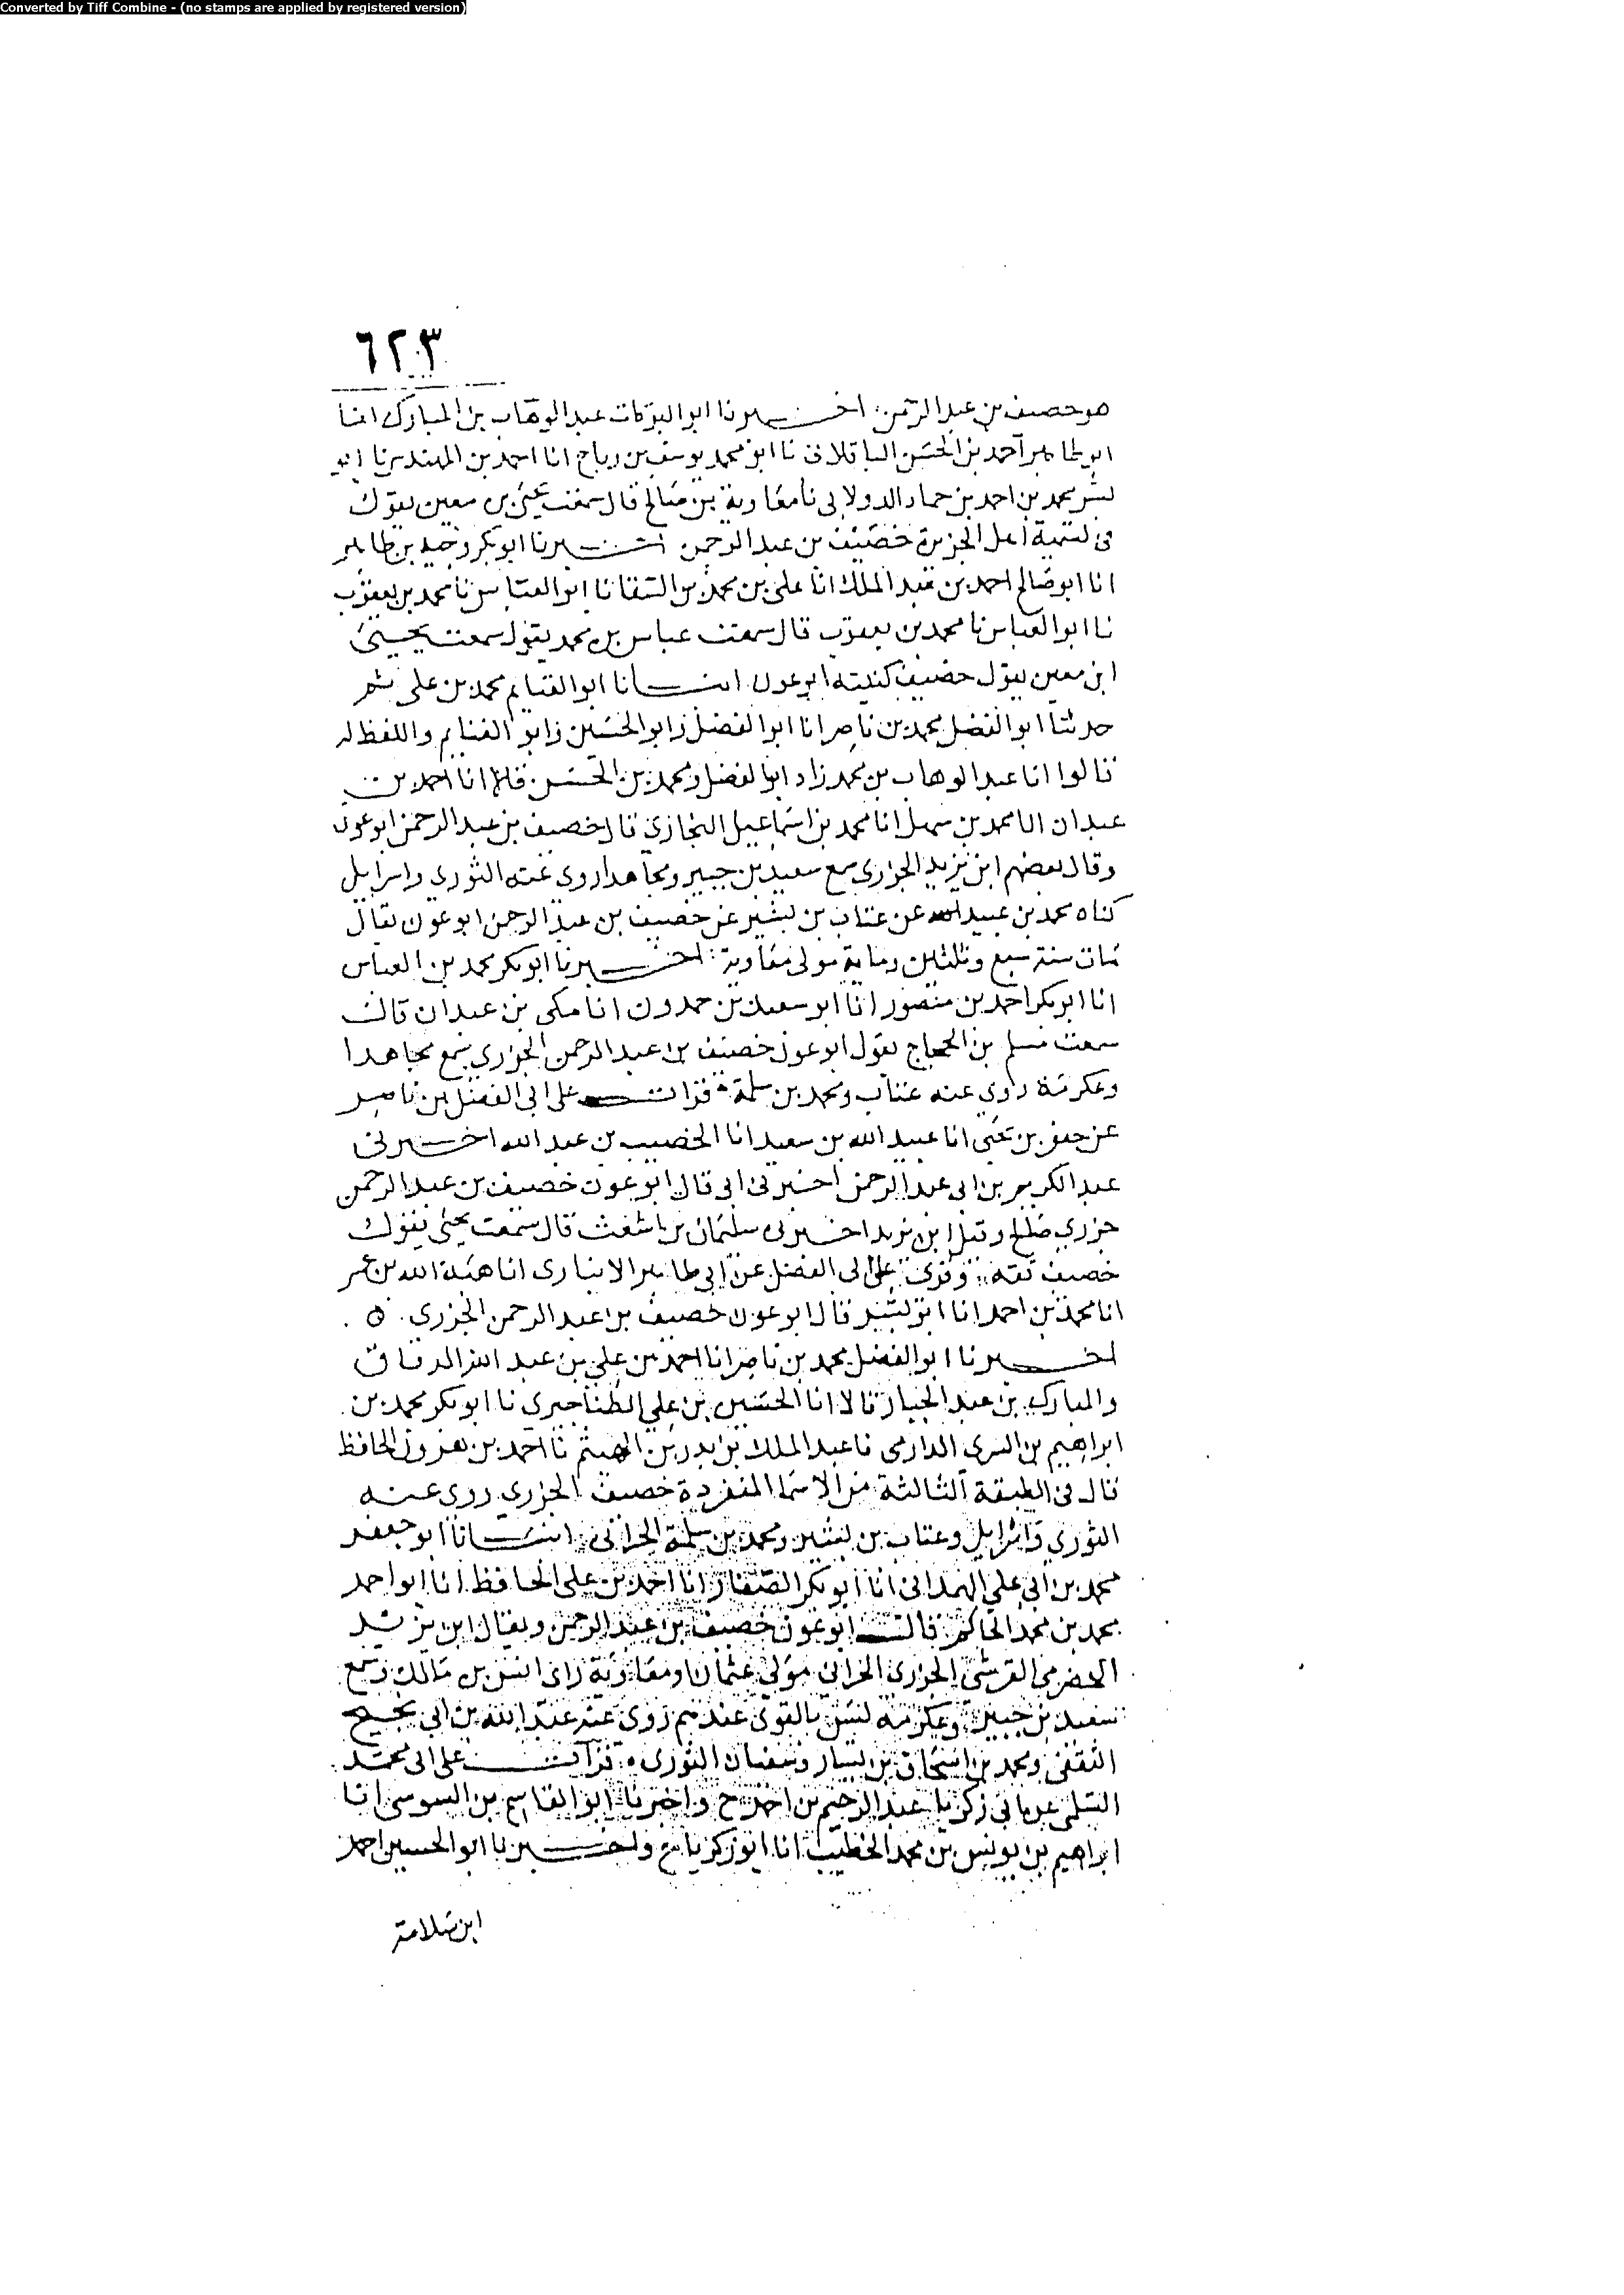 Converted by Tiff Combine - (no stamps are applied by registered version)
٦٢٣
هو خصيف بن عبد الرحمن اخبرنا ابو البركات عبد الوهاب بن المبارك انا
ابو طاهر احمد بن الحسن الباقلانى نا ابو محمد يوسف بن رباح انا احمد بن المهندس نا ابو
بشر محمد بن احمد بن حماد الدولابى نا معاوية بن صالح قال سمعت يحيى بن معين يقول
فى تسمية اهل الجزيرة خصيف بن عبد الرحمن اخبرنا ابو بكر وجيه بن طاهر
انا ابو صالح احمد بن عبد الملك انا على بن محمد بن السقا نا ابو العباس نا محمد بن يعقوب
نا ابو العباس نا محمد بن يعقوب قال سمعت عباس بن محمد يقول سمعت يحيى
ابن معين يقول خصيف كنيته ابو عون انبانا ابو الغنايم محمد بن على ثم
حدثنا ابو الفضل محمد بن ناصر انا ابو الفضل وابو الحسين وابو الغنايم واللفظ له
قالوا انا عبد الوهاب بن محمد زاد ابو الفضل ومحمد بن الحسن قالا انا احمد بن
عبدان انا محمد بن سهل انا محمد بن اسماعيل البخارى قال خصيف بن عبد الرحمن ابو عون
وقال بعضهم ابن يزيد الجزرى سمع سعيد بن جبير ومجاهدا روى عنه الثورى واسرايل
كناه محمد بن عبيد الله عن عتاب بن بشير عن خصيف بن عبد الرحمن ابو عون يقال
مات سنة سبع وثلثين وماية مولى معاوية اخبرنا ابو بكر محمد بن العباس
انا ابو بكر احمد بن منصور انا ابو سعيد بن حمدون انا مكى بن عبدان قال
سمعت مسلم بن الحجاج يقول ابو عون خصيف بن عبد الرحمن الجزرى سمع مجاهدا
وعكرمة روى عنه عتاب ومحمد بن سلمة قرات على ابى الفضل بن ناصر
عن جعفر بن يحيى انا عبيد الله بن سعيد انا الخصيب بن عبد الله اخبرنى
عبد الكريم بن ابى عبد الرحمن اخبرنى ابى قال ابو عون خصيف بن عبد الرحمن
جزرى صالح وقيل ابن يزيد اخبرنى سليمان بن اشعث قال سمعت يحيى يقول
خصيف ثقة وقرى على ابى الفضل عن ابى طاهر الانبارى انا هبة الله بن عمر
انا محمد بن احمد انا ابو بشر قال ابو عون خصيف بن عبد الرحمن الجزرى ه
اخبرنا ابو الفضل محمد بن ناصر انا احمد بن على بن عبد الله الدقاق
والمبارك بن عبد الجبار قالا انا الحسين بن على الطناجيرى نا ابو بكر محمد بن
ابراهيم بن السرى الدارمى نا عبد الملك بن بدر بن الهيثم نا احمد بن هرون الحافظ
قال فى الطبقة الثالثة من الاسما المنفردة خصيف الجزرى روى عنه
الثورى واسرايل وعتاب بن بشير ومحمد بن سلمة الحرانى انبانا ابو جعفر
محمد بن ابى على الهمدانى انا ابو بكر الصفار انا احمد بن على الحافظ انا ابو احمد
محمد بن محمد الحاكم قال ابو عون خصيف بن عبد الرحمن ويقال ابن يزيد
الخضرمى القرشى الجزرى الحرانى مولى عثمان او معاوية راى انس بن مالك وسمع
سعيد بن جبير وعكرمة ليس بالقوى عندهم روى عنه عبد الله بن ابى نجيح
الثقفى ومحمد بن اسحاق بن يسار وسفيان الثورى ه قرات على ابى محمد
السلمى عن ابى زكريا عبد الرحيم بن احمد ح واخبرنا ابو القاسم بن السوسى انا
ابراهيم بن يونس بن محمد الخطيب انا ابو زكريا ح واخبرنا ابو الحسين احمد
ابن سلامة